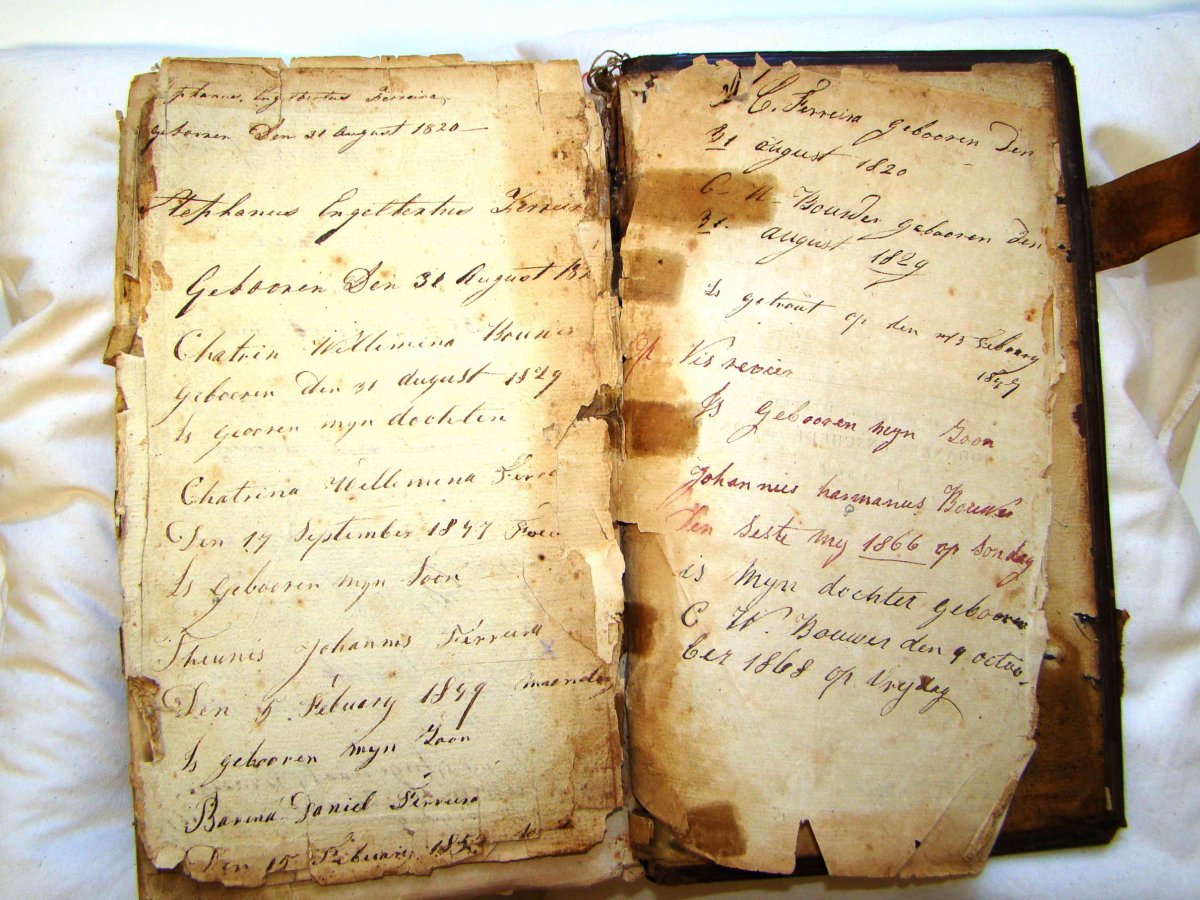 Engelbertus Ferreira
geboren Den 31 August 1820
Stephanus Engelbertus Ferreir
Gebooren Den 31 August 18
Chatrin Willemina
geboeren den 31 august 1829
Is geooren myn dochten
Chatrina Willemina Ferre
Den 17 September 1847
Is geboeren myn Soon
Theunis Johannis Ferreira
Den 5 Febuary 1849 maandag
Is gebooren myn Zoon
Daniel Ferreira
Den 15 Febuary
C. Ferreira gebooren Den
31 august 1820
C W Bouwer gebooren den
31 august 1829
Is getrout op den Febuary
Op Vis revier
Is Gebooren myn Zoon
Johannus harmanus Bouwer
Den Seste my 1866 op Sondag
is Myn dochter gebooren
C W. Bouwer den 9 octoo-
ber 1868 op Vrydag